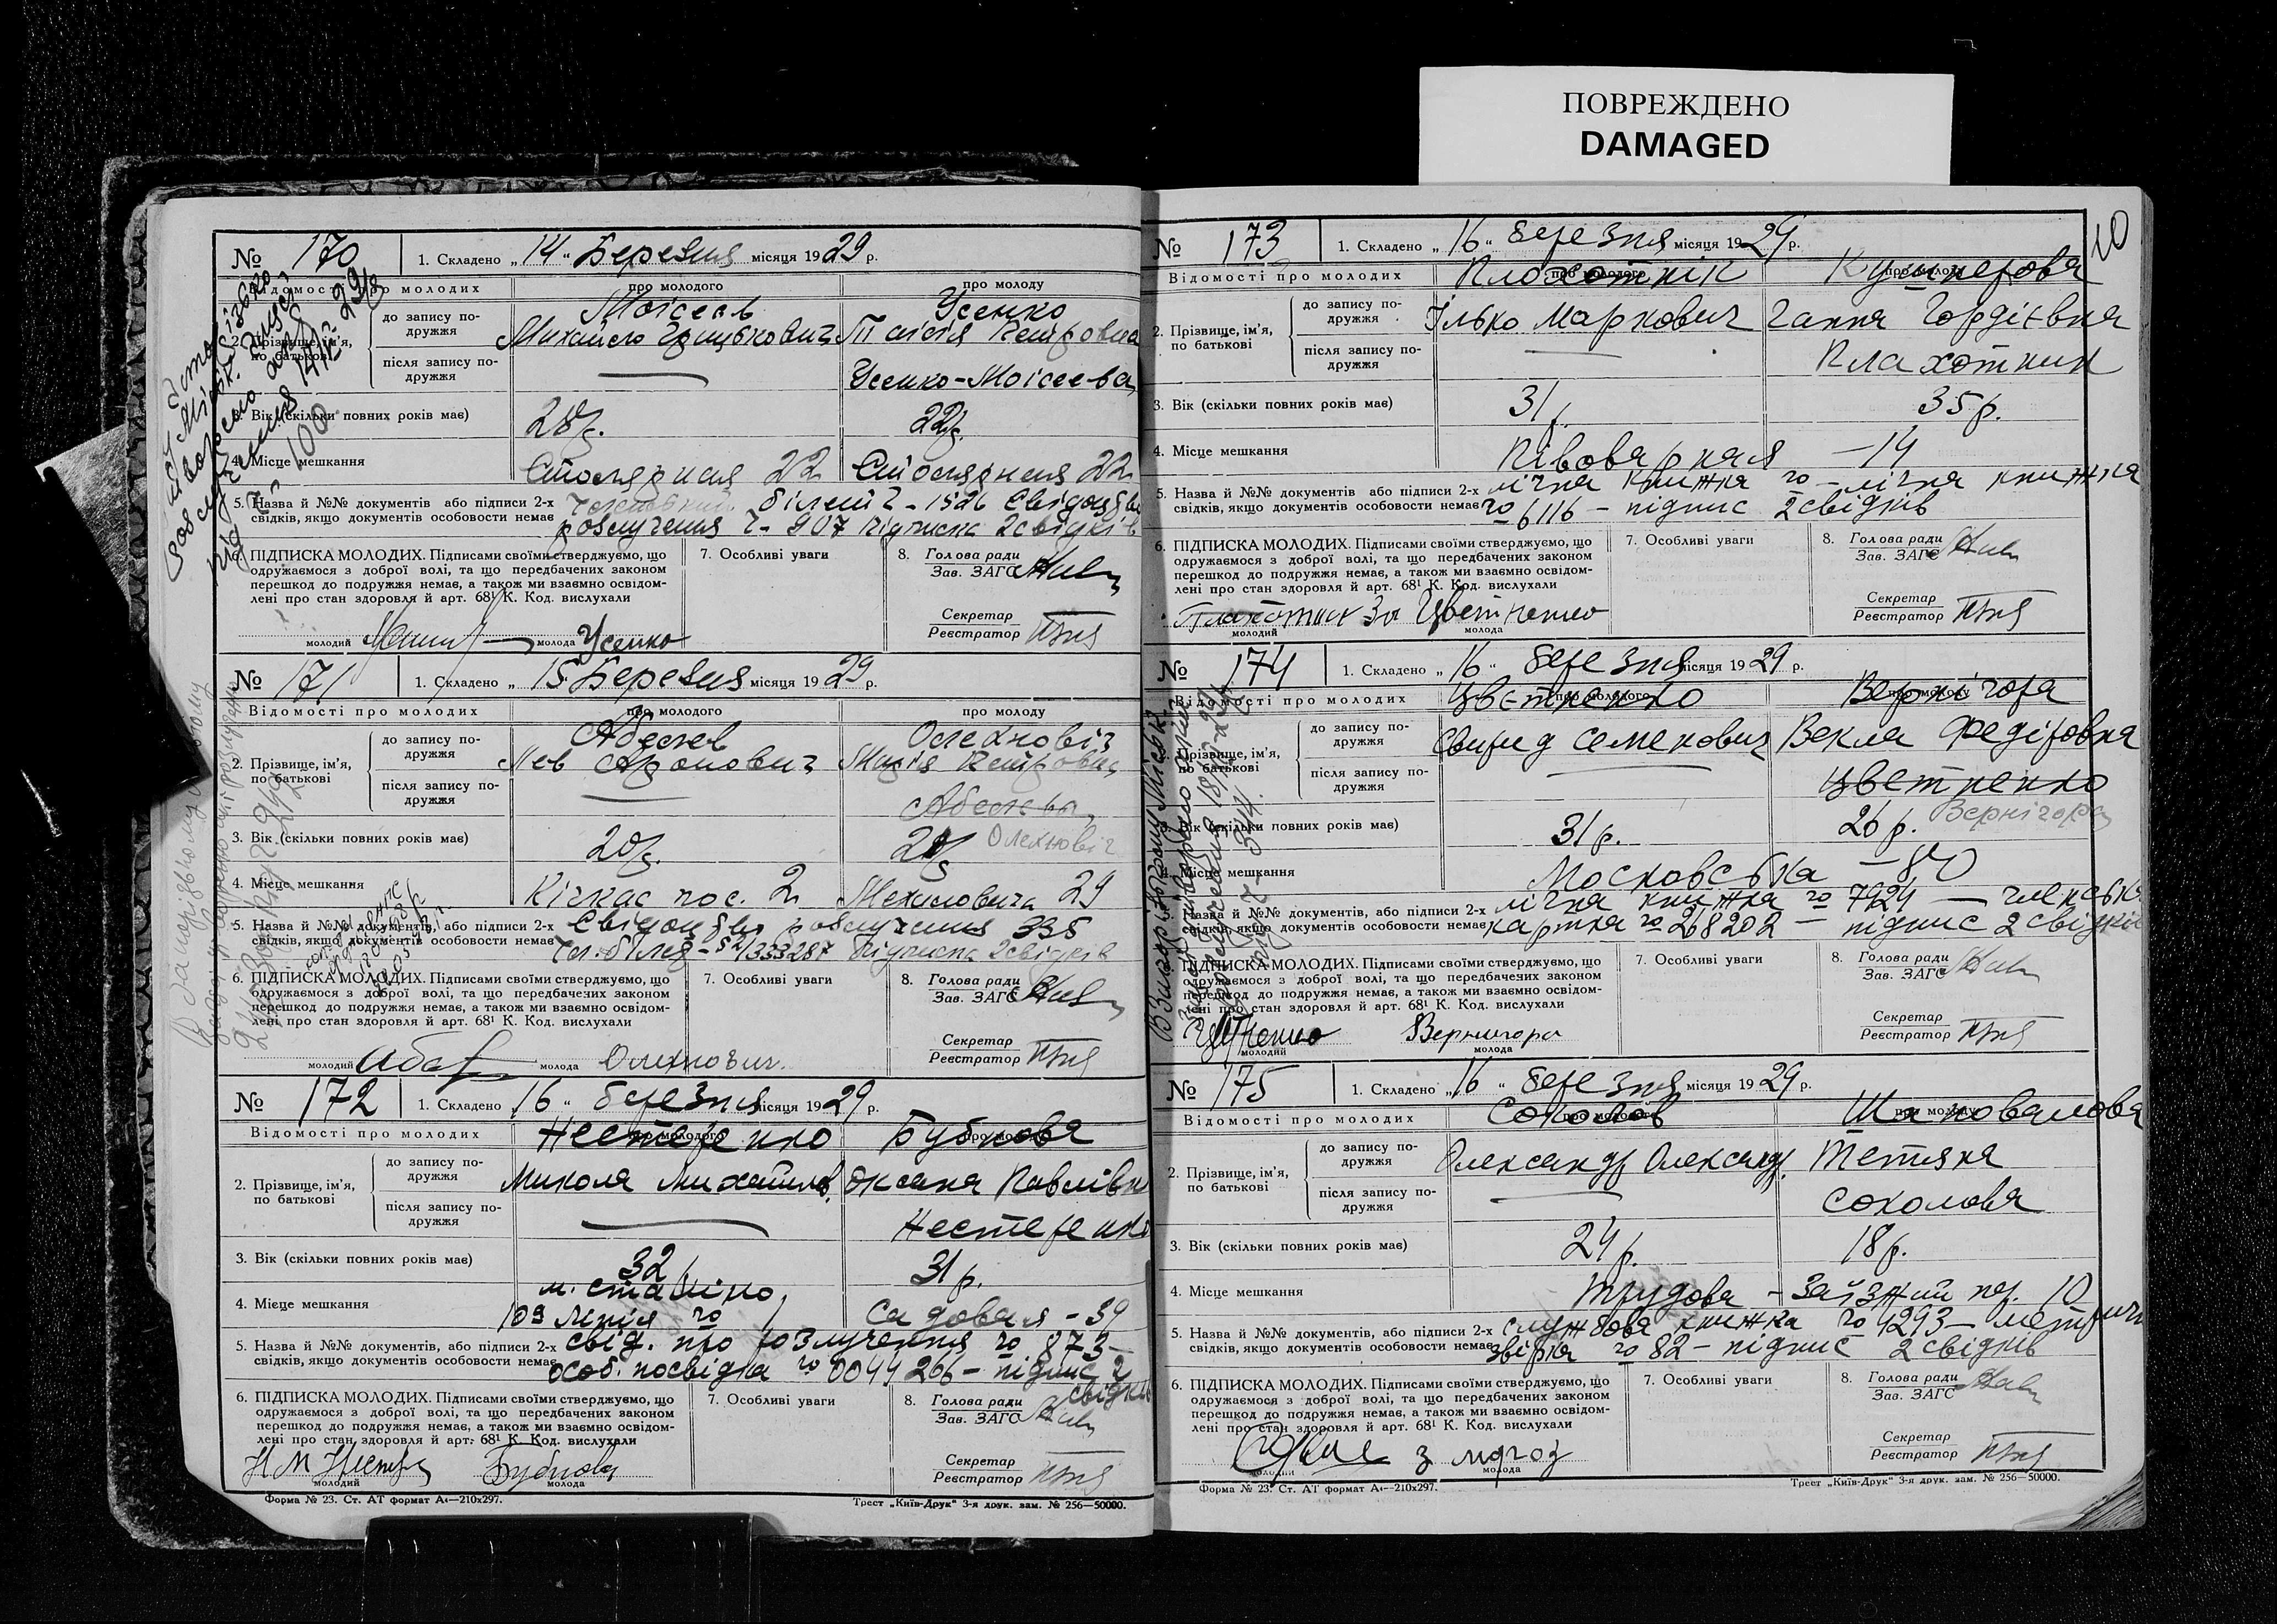 ПОВРЕЖДЕНО
DAMAGED
№ 170 1. Складено „ 14 “ Березня місяця 1929 р.
Відомості про молодих про молодого про молоду
Моісеєв Усенко
2. Прізвище, ім’я, по батькові до запису подружжя Михайло Грицькович Таісія Петровна
після запису подружжя — Усенко-Моісеева
3. Вік (скільки повних років має) 28 р. 22 р.
4. Місце мешкання Столярная 22 Столярная 22
5. Назва й №№ документів або підписи 2-х білет ч- 1526 Свідоцтво
свідків, якщо документів особовости немає розлучення ч- 907 підписи 2 свідків
6. ПІДПИСКА МОЛОДИХ. Підписами своїми стверджуємо, що 7. Особливі уваги 8. Голова ради
одружаємося з доброї волі, та що передбачених законом Зав. ЗАГС
перешкод до подружжя немає, а також ми взаємно освідом-
лені про стан здоровля й арт. 68¹ К. Код. вислухали Секретар
Реєстратор
молодий молода Усенко
№ 171 1. Складено „ 15 Березня місяця 1929 р.
Відомості про молодих про молодого про молоду
Олехновіч
2. Прізвище, ім’я, по батькові до запису подружжя Лев Аронович Марія Петровна
після запису подружжя —
3. Вік (скільки повних років має) 20 р. Олехновіч
4. Місце мешкання Кічкас пос. 2 29
5. Назва й №№ документів, або підписи 2-х Свідоцтво розлучення 335
свідків, якщо документів особовости немає 333287 Підписи 2 свідків
6. ПІДПИСКА МОЛОДИХ. Підписами своїми стверджуємо, що 7. Особливі уваги 8. Голова ради
одружаємося з доброї волі, та що передбачених законом Зав. ЗАГС
перешкод до подружжя немає, а також ми взаємно освідом-
лені про стан здоровля й арт. 68¹ К. Код. вислухали Секретар
Реєстратор
молодий молода Олехнович
№ 172 1. Складено „ 16 “ березня місяця 1929 р.
Відомості про молодих про молодого про молоду
Нестеренко Бубнова
2. Прізвище, ім’я, по батькові до запису подружжя Микола Михайлов. Оксана Павлівн
після запису подружжя — Нестеренко
3. Вік (скільки повних років має) 32 31 р.
4. Місце мешкання м. Сталіно, 10я лінія Садовая - 39
5. Назва й №№ документів, або підписи 2-х свід. про розлучення чо 873 -
свідків, якщо документів особовости немає особ. посвідка чо 0044266 - підпис 2 свідків
6. ПІДПИСКА МОЛОДИХ. Підписами своїми стверджуємо, що 7. Особливі уваги 8. Голова ради
одружаємося з доброї волі, та що передбачених законом Зав. ЗАГС
перешкод до подружжя немає, а також ми взаємно освідом-
лені про стан здоровля й арт. 68¹ К. Код. вислухали Секретар
Реєстратор
молодий молода Бубнова
Форма № 23. Ст. АТ формат А4—210х297. Трест „Київ-Друк“ 3-я друк. зам. № 256—50000.
10
№ 173 1. Складено „ 16 “ березня місяця 1929 р.
Відомості про молодих про молодого про молоду
Плохотнік Кушнерова
2. Прізвище, ім’я, по батькові до запису подружжя Ілько Маркович Ганна Гордієвна
після запису подружжя — Плахотник
3. Вік (скільки повних років має) 31 р. 35 р.
4. Місце мешкання Півоварная - 14
5. Назва й №№ документів або підписи 2-х лічна книжка чо - лічна книжка
свідків, якщо документів особовости немає чо 6116 - підпис 2 свідків
6. ПІДПИСКА МОЛОДИХ. Підписами своїми стверджуємо, що 7. Особливі уваги 8. Голова ради
одружаємося з доброї волі, та що передбачених законом Зав. ЗАГС
перешкод до подружжя немає, а також ми взаємно освідом-
лені про стан здоровля й арт. 68¹ К. Код. вислухали Секретар
Реєстратор
Плахотник За Цветненко
молодий молода
№ 174 1. Складено „ 16 “ березня місяця 1929 р.
Відомості про молодих про молодого про молоду
Цвєтненко Вернігора
2. Прізвище, ім’я, по батькові до запису подружжя Свирид Семенович Векла Федіровна
після запису подружжя — Цветненко
Вернігора
3. Вік (скільки повних років має) 31 р. 26 р.
4. Місце мешкання Московська - 80
5. Назва й №№ документів, або підписи 2-х лічна книжка чо 7924 — членська
свідків, якщо документів особовости немає картка чо 268202 — підпис 2 свідків
6. ПІДПИСКА МОЛОДИХ. Підписами своїми стверджуємо, що 7. Особливі уваги 8. Голова ради
одружаємося з доброї волі, та що передбачених законом Зав. ЗАГС
перешкод до подружжя немає, а також ми взаємно освідом-
лені про стан здоровля й арт. 68¹ К. Код. вислухали Секретар
Реєстратор
Вернигора
молодий молода
№ 175 1. Складено „ 16 “ березня місяця 1929 р.
Відомості про молодих про молодого про молоду
Соколов Шаповалова
2. Прізвище, ім’я, по батькові до запису подружжя Олександр Олександр. Тетяна
після запису подружжя — Соколова
3. Вік (скільки повних років має) 24 р. 18 р.
4. Місце мешкання Трудова - Заїзжий пер. 10
5. Назва й №№ документів, або підписи 2-х службова книжка чо 4293 - метрична
свідків, якщо документів особовости немає чо 82 - підпис 2 свідків
6. ПІДПИСКА МОЛОДИХ. Підписами своїми стверджуємо, що 7. Особливі уваги 8. Голова ради
одружаємося з доброї волі, та що передбачених законом Зав. ЗАГС
перешкод до подружжя немає, а також ми взаємно освідом-
лені про стан здоровля й арт. 68¹ К. Код. вислухали Секретар
Реєстратор
молодий молода
Форма № 23. Ст. АТ формат А4—210х297. Трест „Київ-Друк“ 3-я друк. зам. № 256—50000.